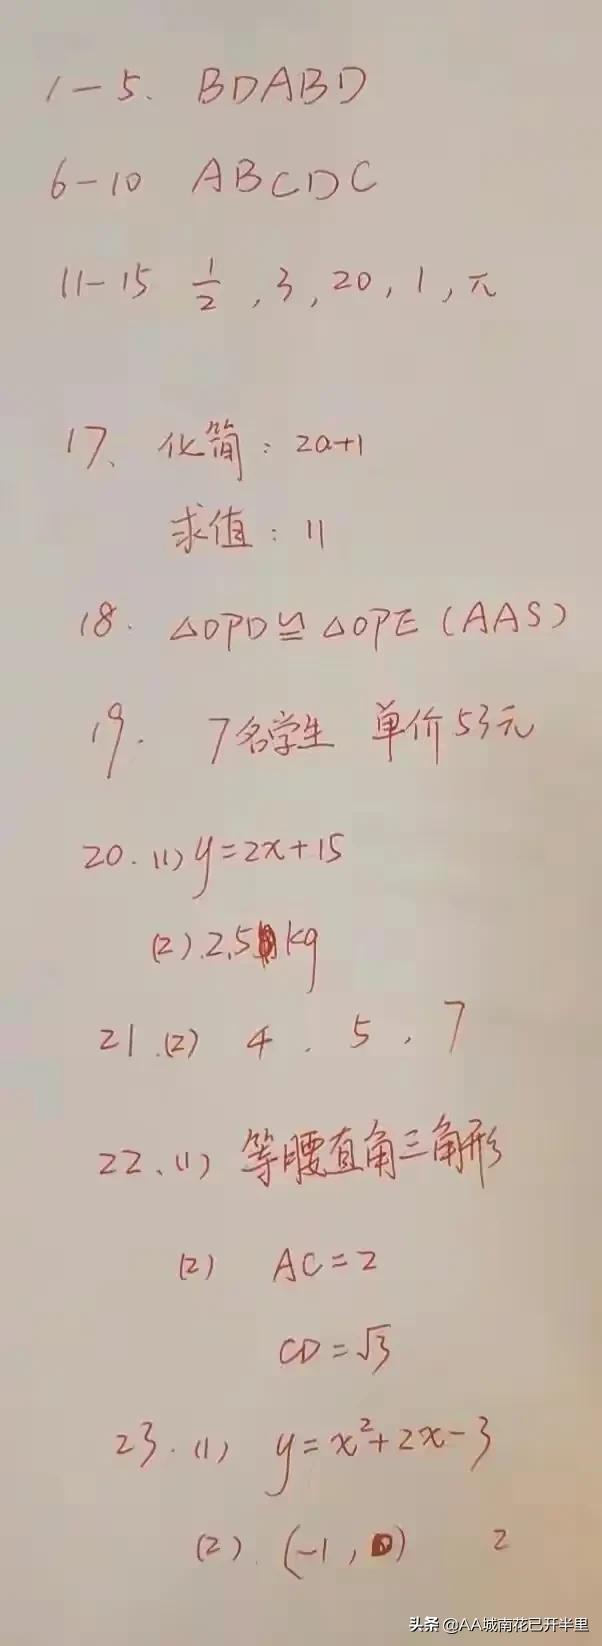 1－5. BDABD
6－10 ABCDC
11－15 1/2 , 3 , 20 , 1 , π
17、化简：2a+1
求值：11
18. △OPD≌△OPE (AAS)
19. 7名学生 单价53元
20. (1) y=2x+15
(2). 2.5 kg
21.(2) 4 . 5 . 7
22、(1) 等腰直角三角形
(2) AC=2
CD=√3
23.(1) y=x²+2x-3
(2). (-1, 0) 2
头条 @AA城南花已开半里